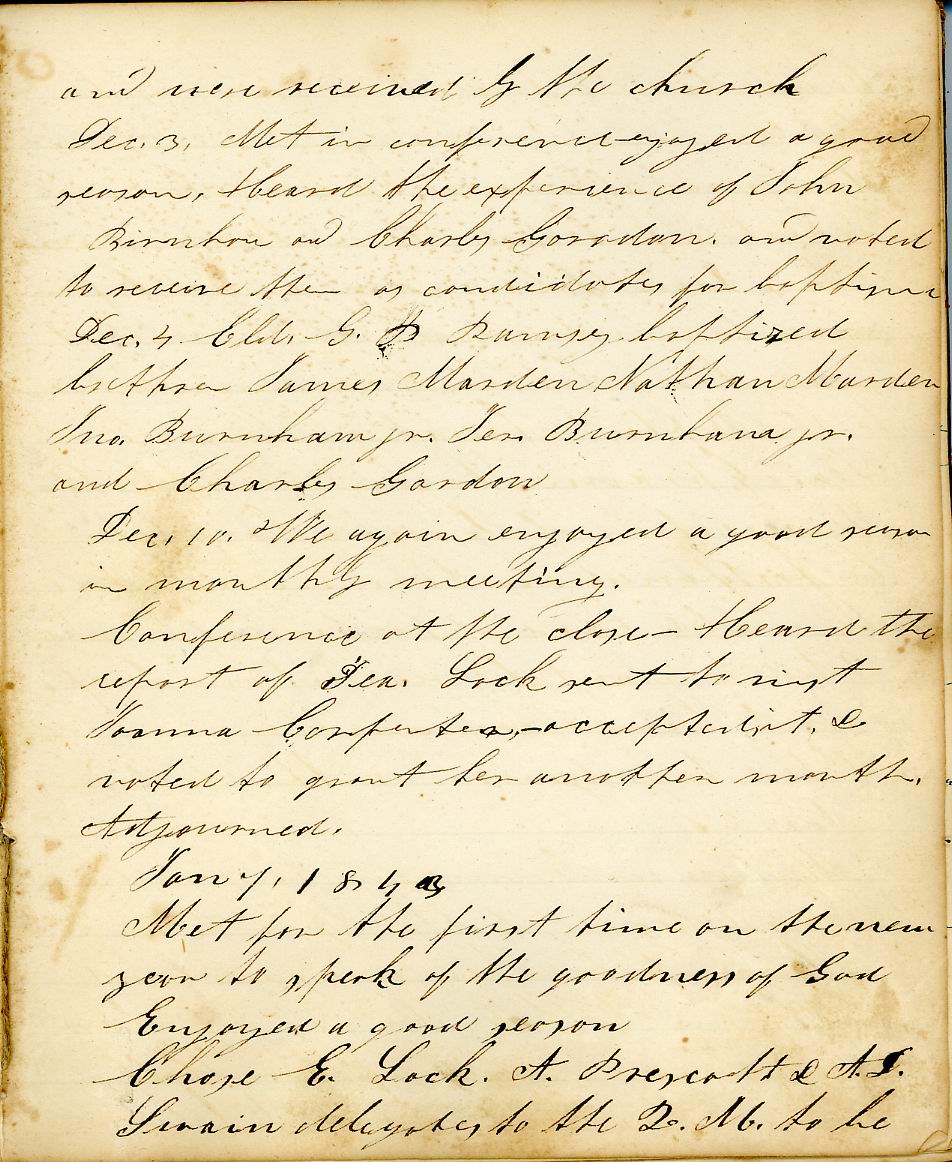 and were received by the church
Dec. 3, Met in conference enjoyed a good
season, Heard the experience of John
and Charles Goradon. and voted
to receive them as condidates for baptism
Dec. 4 Eld. G. P Ramsey baptized
James Marden Nathan Marden
Jno. Burnham jr. Jer. Burnham jr.
and Charles Gordon
Dec. 10. We again enjoyed a good season
in monthly meeting.
Conference at the close - Heard the
report of Dea. Lock sent to visit
Joanna Carpenter, - accepted it, &
voted to grant her another month.
Adjourned.
Jan 7, 1843
Met for the first time on the new
year to speak of the goodness of God
Enjoyed a good season
Chose E. Lock. A. Prescott & A. D.
Swain delegates to the Q. M. to be